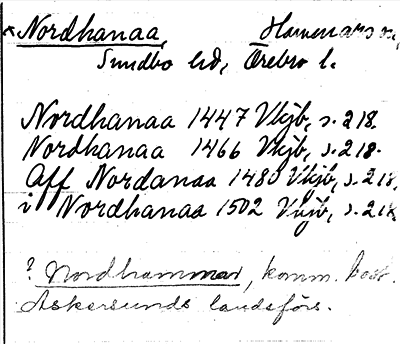 Nordhanaa, Hamenars sn,
Sundbo hd, Örebro l.
Nordhanaa 1447 Vkjb, s. 218.
Nordhanaa 1466 Vkjb, s. 218.
Aff Nordanaa 1480 Vkjb, s. 218,
i Nordhanaa 1502 Vkjb, s. 218
? Nordhammar, komm.
Askersunds landsförs.